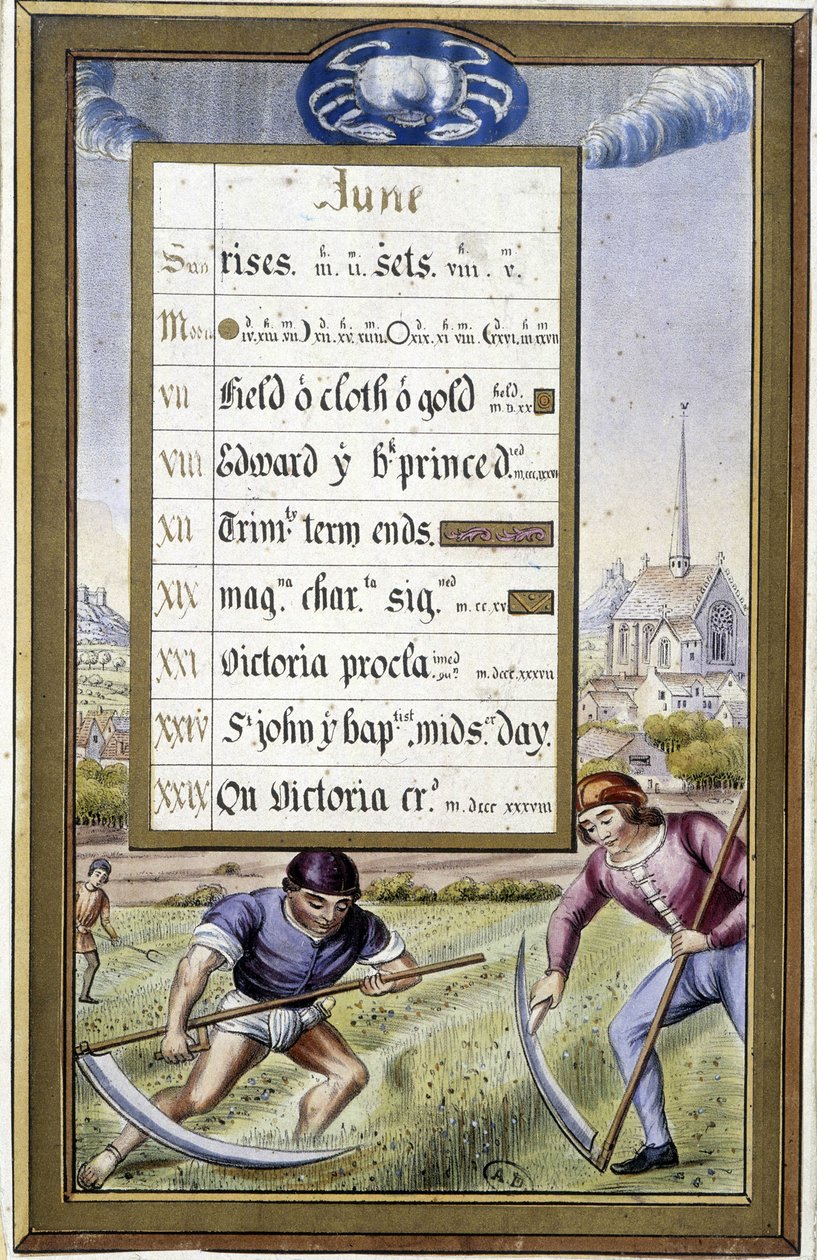 June
Sun rises. h. iii. m. ii. sets. h. viii. m. v.
Moon d. iv. h. xiii m. vii d. xii. h. xv. m. xiiii. d. xix. h. xi m. viii. d. xxvi. h. iii m. xxvii
VII Field o^f cloth o^f gold held. m.d.xx
VIII Edward y^e b^k prince d^ied
XII Trim^ty. term ends.
XIX mag.^na char.^ta sig.^ned m.cc.xv
XXI Victoria procla^imed qu^n m.dccc.xxxvii
XXIV S^t john y^e bap^tist. mids.^er day.
XXIX Qu Victoria cr.^d m.dccc xxxviii
A D